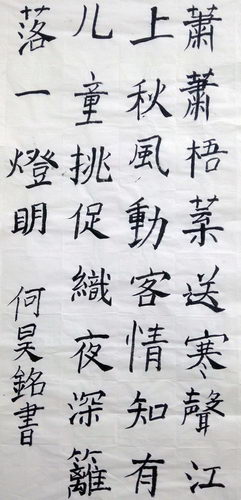 蕭蕭梧葉送寒聲江
上秋風動客情知有
儿童挑促織夜深籬
落一燈明
何昊銘書